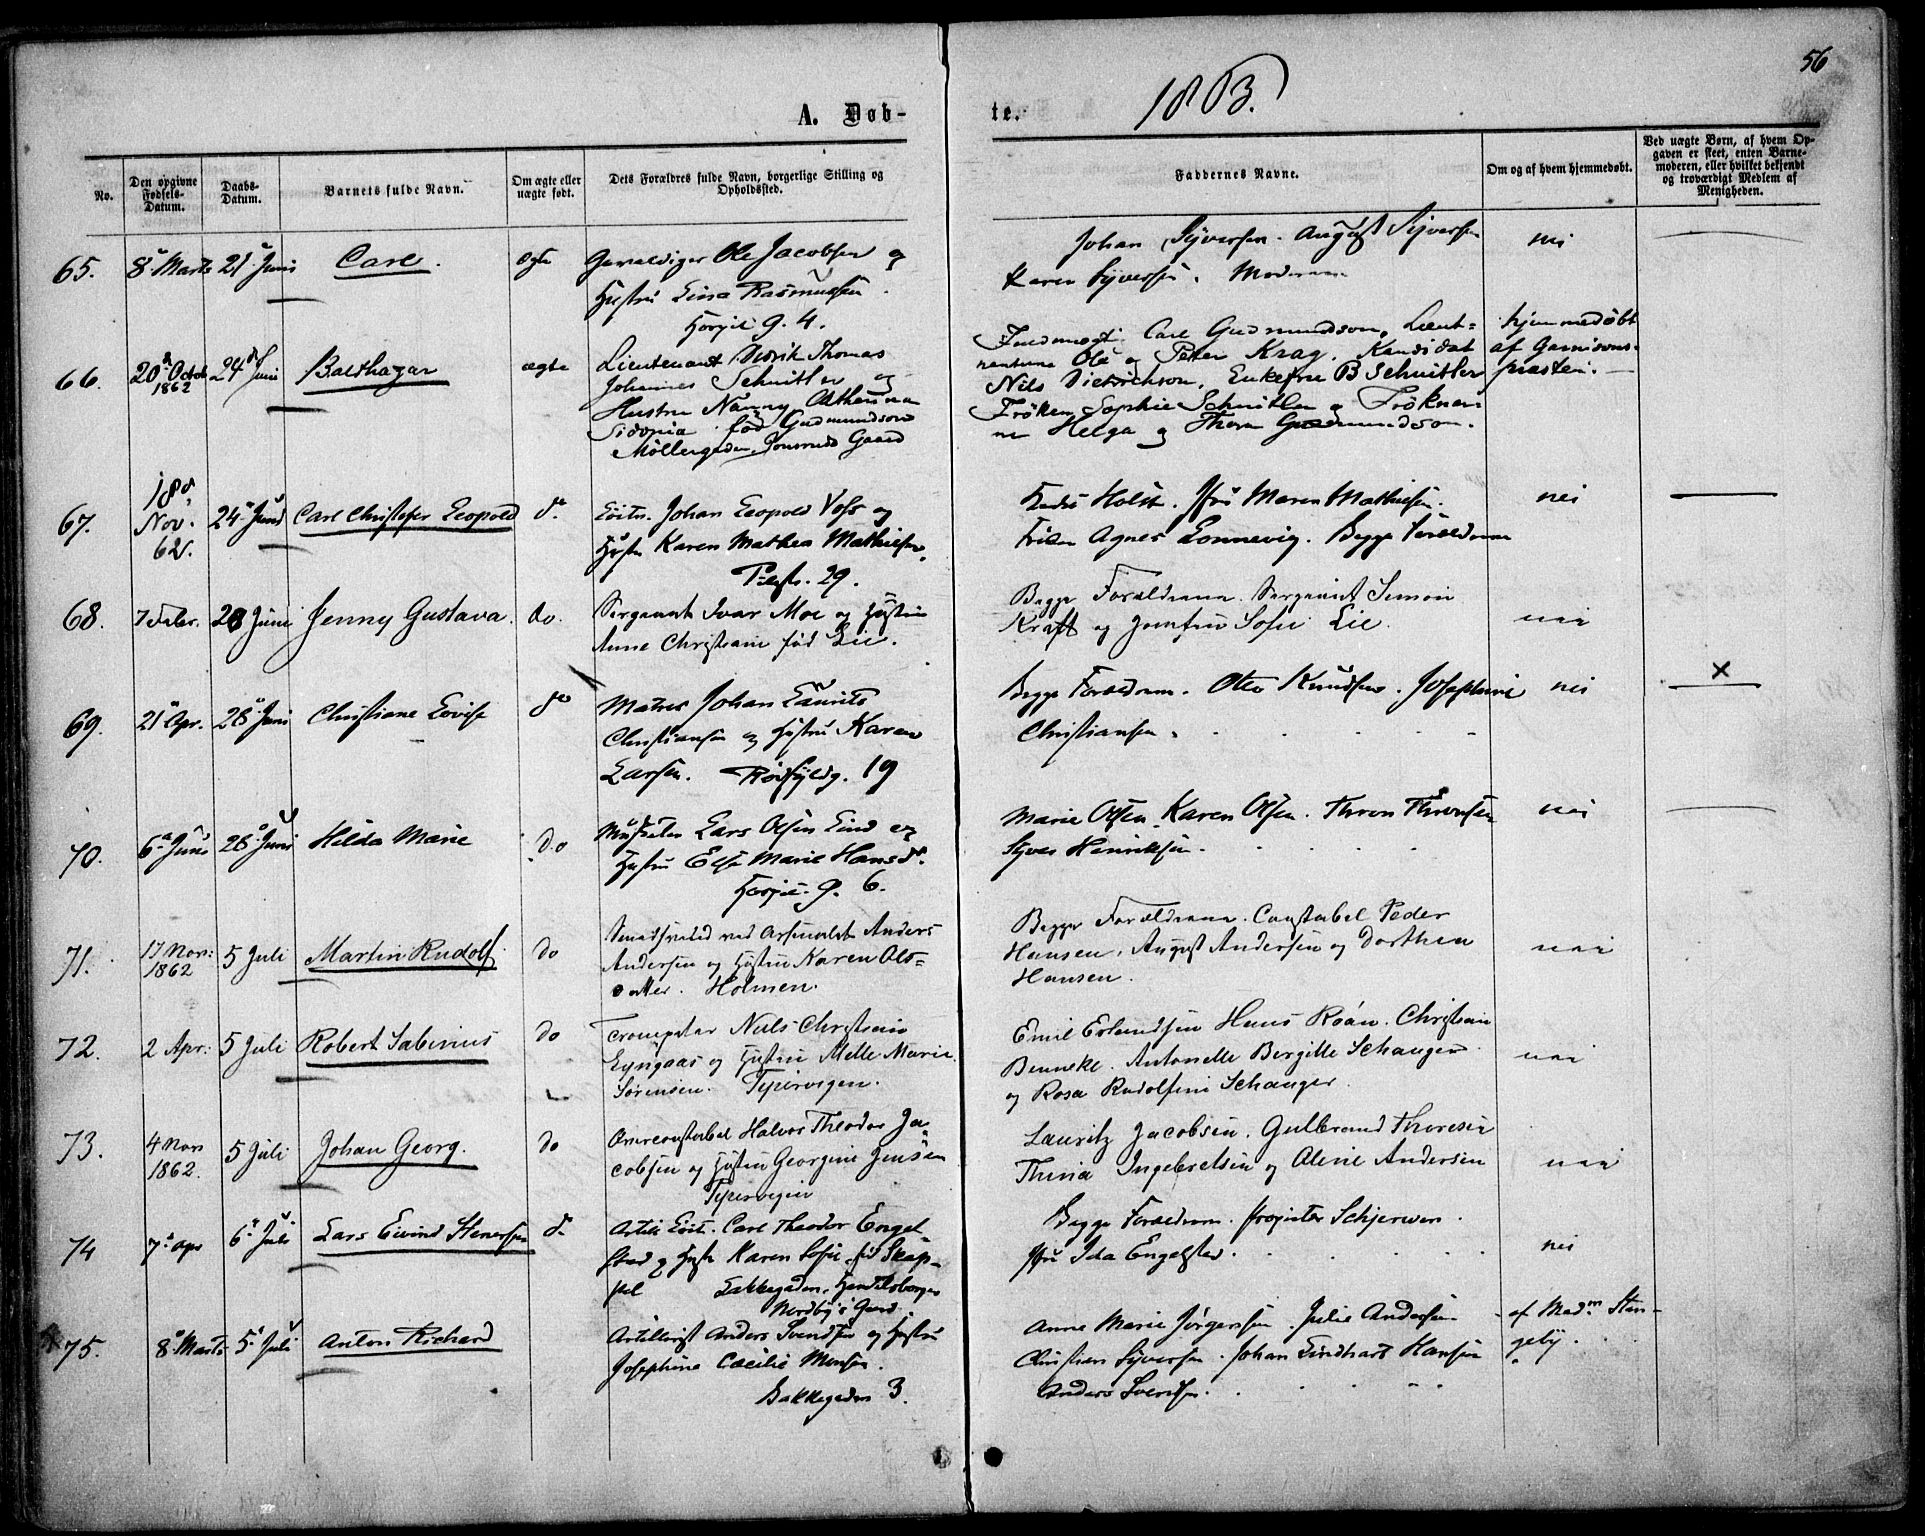 56
A. Døb-
te.
1863.
No.
Den opgivne Fødsels-Datum.
Daabs-Datum.
Barnets fulde Navn.
Om ægte eller uægte født.
Dets Forældres fulde Navn, borgerlige Stilling og Opholdssted.
Faddernes Navne.
Om og af hvem hjemmedøbt.
Ved uægte Børn, af hvem Opgaven er skeet, enten Barnemoderen, eller hvilket bekjendt og troværdigt Medlem af Menigheden.
65. 8 Marts 21 Juni Carl. ægte Gevaldiger Ole Jacobsen og
Hustru Lina Rasmussen.
g. 4.
Johan Syversen. August Syversen
Karen Syversen. Moderen
nei
66. 20de Octob 1862 24de Juni Balthazar ægte Lieutenant Didrik Thomas
Johannes Schnitler og
Hustru Nanny Althea
Sidonia født Gudmundson
Møllergaden, Gaard
Fuldmægt. Carl Gudmundson, Lieut-
nanterne Ole og Peter Krag. Kandidat
Nils Dietrichson, Enkefru B Schnitler
Frøken Sophie Schnitler og Frøkner-
ne Helga og Thora Gudmundson.
hjemmedøbt
af Garnisons-
præsten.
67. 18de Nov. 62. 24 Juni Carl Christofer Leopold do. Johan Leopold Voss og
Hustru Karen Mathea Mathiesen,
Pilestr. 29.
Holst. Jfr Maren Mathiesen.
Agnes Lonnevig. Begge Forældrene
nei
68. 7 Febr. 28 Juni Jenny Gustava. do. Sergeant Ivar Moe og Hustru
Anne Christiane født Lie.
Begge Forældrene. Sergeant Simon
Kraft og Jomfru Sofie Lie.
nei
69. 21 Apr. 28 Juni Christiane Lovise do Matros Johan Laurits
Christiansen og Hustru Karen
Larsen. Rødfyldg. 19
Begge Forældrene. Otto Knudsen. Josephine
Christiansen.
nei
×
70. 6 Juni 28 Juni Hilda Marie do Lars Olsen Lind og
Hustru Else Marie Hansd.
g. 6.
Marie Olsen. Karen Olsen. Thron Thronsen
Syver Henriksen.
nei
71. 17 Nov: 1862 5 Juli Martin Rudolf do Smedsvend ved Arsenalet Anders
Andersen og Hustru Karen Ols-
datter. Holmen.
Begge Forældrene. Constabel Peder
Hansen, August Andersen og Dorthea
Hansen.
nei
72. 2 Apr: 5 Juli Robert Sabinus do Trompeter Niels Christian
Lyngaas og Hustru Mette Marie
Sørensen. Pipervigen.
Emil Erlandsen Hans Roán. Christian
Benneke. Antonette Bergitte Schanger
og Rosa Rudolfine Schanger.
nei
73. 4 Nov 1862. 5 Juli Johan Georg. do Overconstabel Halvor Theodor Ja-
cobsen og Hustru Georgine Jensen
Pipervigen
Lauritz Jacobsen. Gulbrand Thoresen
Thrina Ingebretsen og Oline Andersen
nei
74 7 Apr 6 Juli Lars Eivind Stenersen do. Artill. Løit. Carl Theodor Engel-
stad og Hustr Karen Sofie fød Skap-
pel Lakkegaden,
Nordby's Gaard.
Begge Forældrene. Schjerven.
Jfr Ida Engelstad.
nei
75. 8 Marts 5 Juli Anton Richard Artillerist Anders Svendsen og Hustru
Josephine Cæcilie Monsen.
Bakkegaden 3.
Anne Marie Jørgensen. Julie Andersen
Christian Syversen. Johan Lindhart Hansen
Anders Svendsen.
af Madm Sten-
geby.